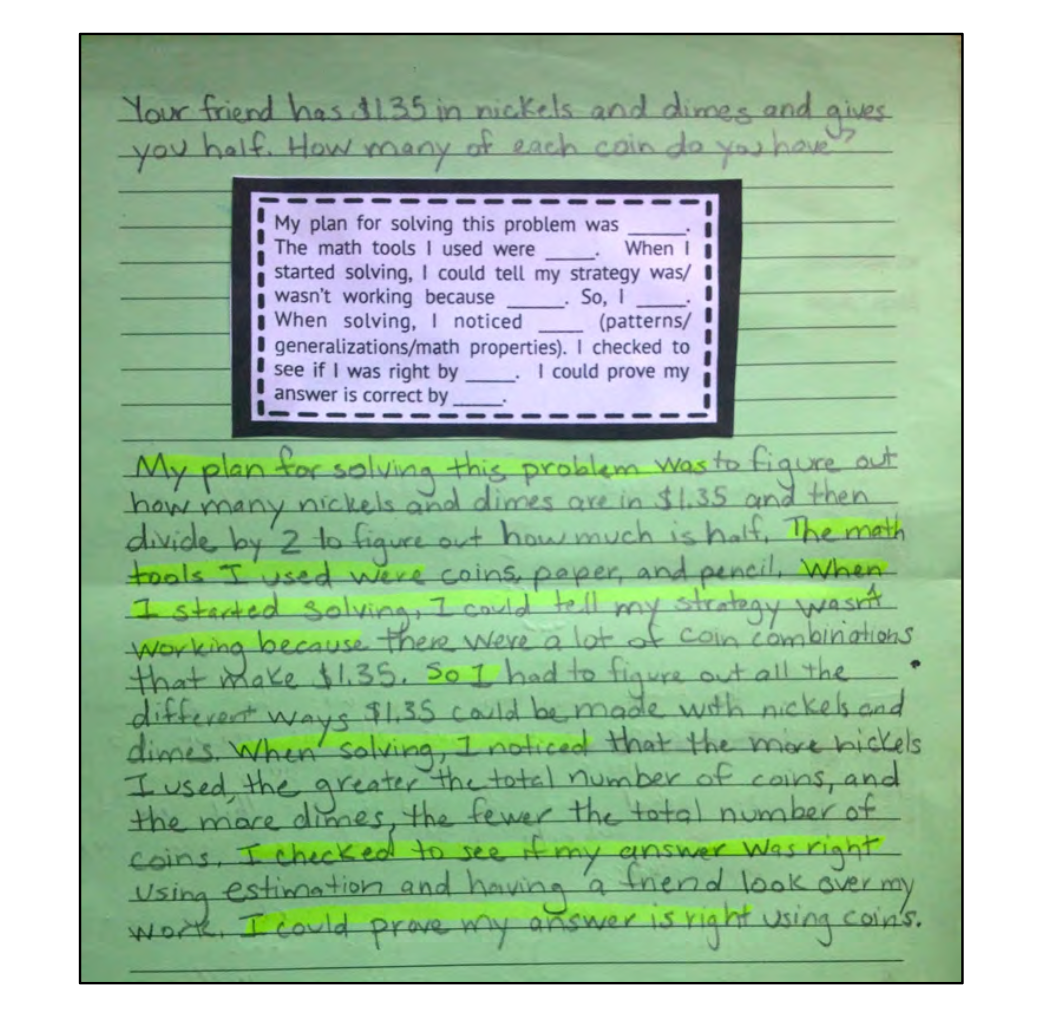 Your friend has $1.35 in nickels and dimes and gives
you half. How many of each coin do you have?
My plan for solving this problem was _____.
The math tools I used were _____. When I
started solving, I could tell my strategy was/
wasn't working because _____. So, I _____.
When solving, I noticed _____ (patterns/
generalizations/math properties). I checked to
see if I was right by _____. I could prove my
answer is correct by _____.
My plan for solving this problem was to figure out
how many nickels and dimes are in $1.35 and then
divide by 2 to figure out how much is half. The math
tools I used were coins, paper, and pencil. When
I started solving, I could tell my strategy wasn't
working because there were a lot of coin combinations
that make $1.35. So I had to figure out all the
different ways $1.35 could be made with nickels and
dimes. When solving, I noticed that the more nickels
I used, the greater the total number of coins, and
the more dimes, the fewer the total number of
coins. I checked to see if my answer was right
using estimation and having a friend look over my
work. I could prove my answer is right using coins.